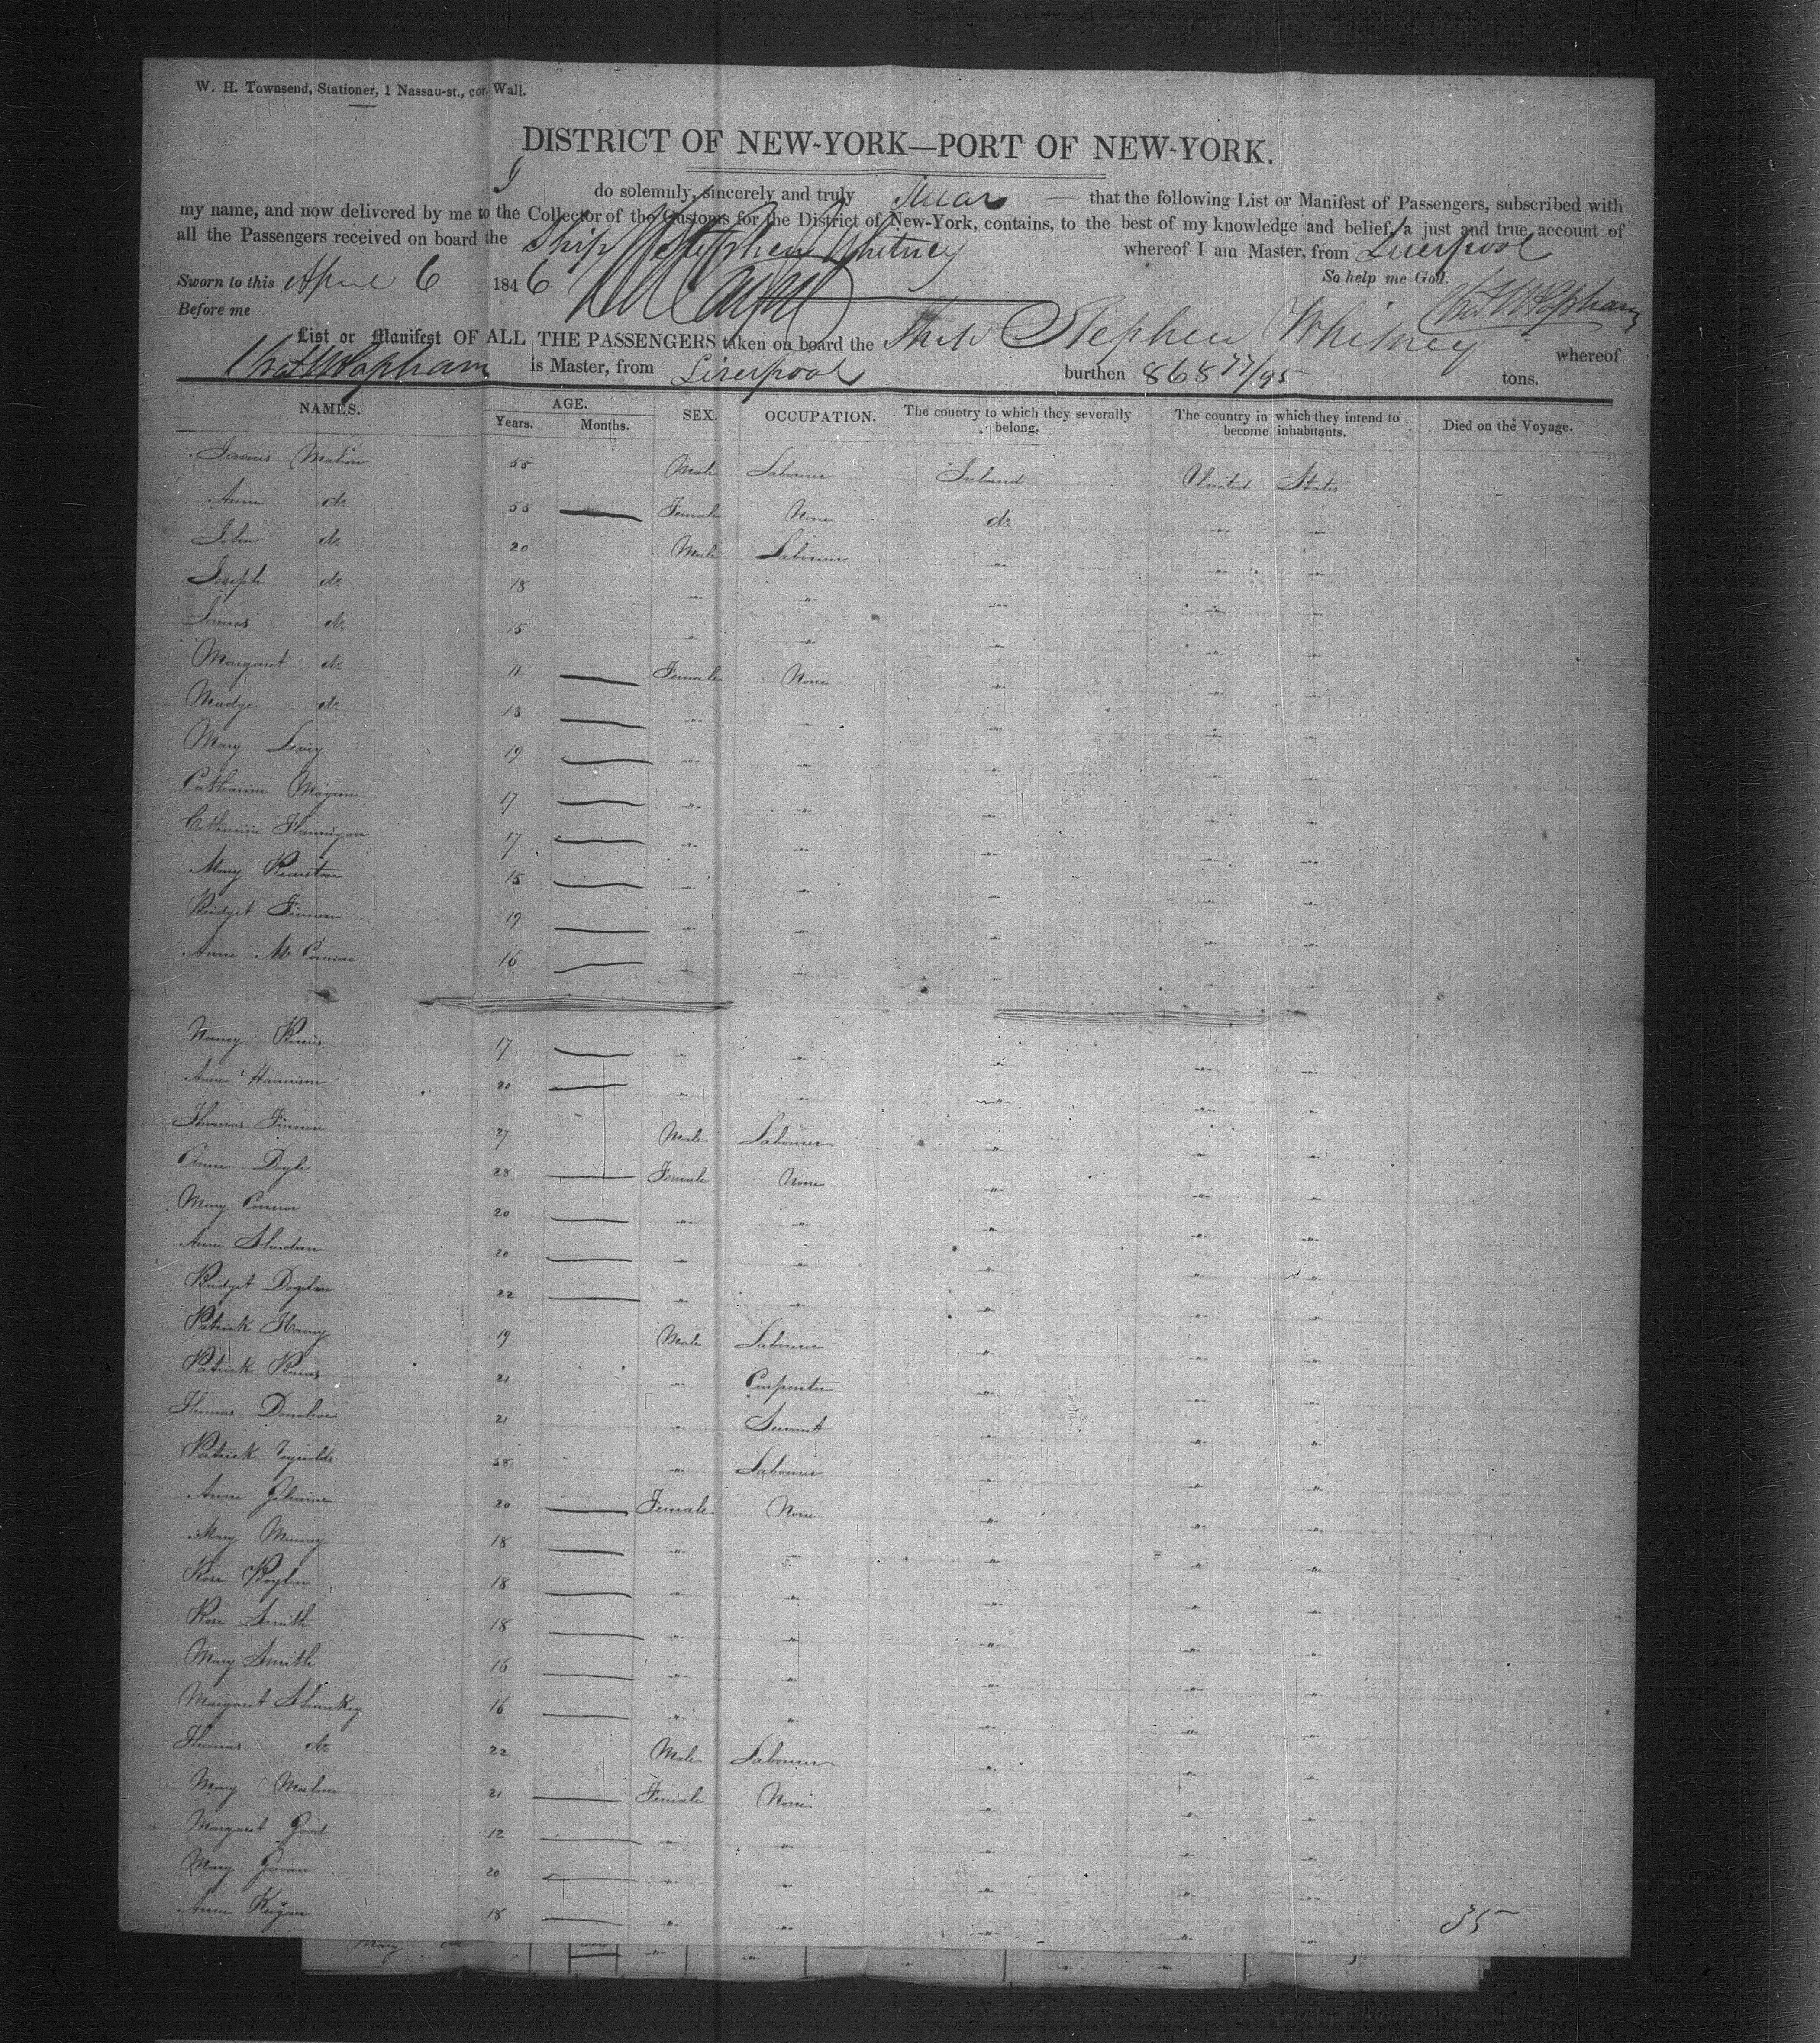 W. H. Townsend, Stationer, 1 Nassau-st., cor. Wall.
DISTRICT OF NEW-YORK—PORT OF NEW-YORK.
I do solemnly, sincerely and truly Swear — that the following List or Manifest of Passengers, subscribed with
my name, and now delivered by me to the Collector of the Customs for the District of New-York, contains, to the best of my knowledge and belief, a just and true account of
all the Passengers received on board the Ship Stephen Whitney whereof I am Master, from Liverpool
Sworn to this April 6 1846 So help me God.
Before me
List or Manifest OF ALL THE PASSENGERS taken on board the Ship Stephen Whitney whereof
is Master, from Liverpool burthen 868 77/95 tons.
NAMES. AGE. SEX. OCCUPATION. The country to which they severally belong. The country in which they intend to become inhabitants. Died on the Voyage.
Years. Months.
James 55 Male Labourer Ireland United States
Anne do 55 Female None do
John do 20 Male Labourer -"- -"- -"-
Joseph do 18 -"- -"- -"- -"- -"-
James do 15 -"- -"- -"- -"- -"-
Margaret do 11 Female None -"- -"- -"-
Madge do 13 -"- -"- -"- -"- -"-
Mary 19 -"- -"- -"- -"- -"-
Catharine 17 -"- -"- -"- -"- -"-
Catharine Flannigan 17 -"- -"- -"- -"- -"-
Mary 15 -"- -"- -"- -"- -"-
Bridget Finnen 19 -"- -"- -"- -"- -"-
Anne 16 -"- -"- -"- -"-
Nancy 17 -"- -"- -"- -"- -"-
Anne 20 -"- -"- -"- -"- -"-
Thomas Finnen 27 Male Labourer -"- -"- -"-
Anne Doyle 28 Female None -"- -"- -"-
Mary Connor 20 -"- -"- -"- -"- -"-
Anne Sheridan 20 -"- -"- -"- -"- -"-
Bridget 22 -"- -"- -"- -"- -"-
Patrick 19 Male Labourer -"- -"- -"-
Patrick 21 -"- Carpenter -"- -"- -"-
Thomas Donohoe 21 -"- Servant -"- -"- -"-
Patrick Reynolds 38 -"- Labourer -"- -"- -"-
Anne 20 Female None -"- -"- -"-
Mary Murray 18 -"- -"- -"- -"- -"-
Rose Boylan 18 -"- -"- -"- -"- -"-
Rose Smith 18 -"- -"- -"- -"- -"-
Mary Smith 16 -"- -"- -"- -"- -"-
Margaret Sharkey 16 -"- -"- -"- -"- -"-
Thomas do 22 Male Labourer -"- -"- -"-
Mary Malone 21 Female None -"- -"- -"-
Margaret 12 -"- -"- -"- -"- -"-
Mary 20 -"- -"- -"- -"- -"-
Anne 18 -"- -"- -"- -"-
35
Mary